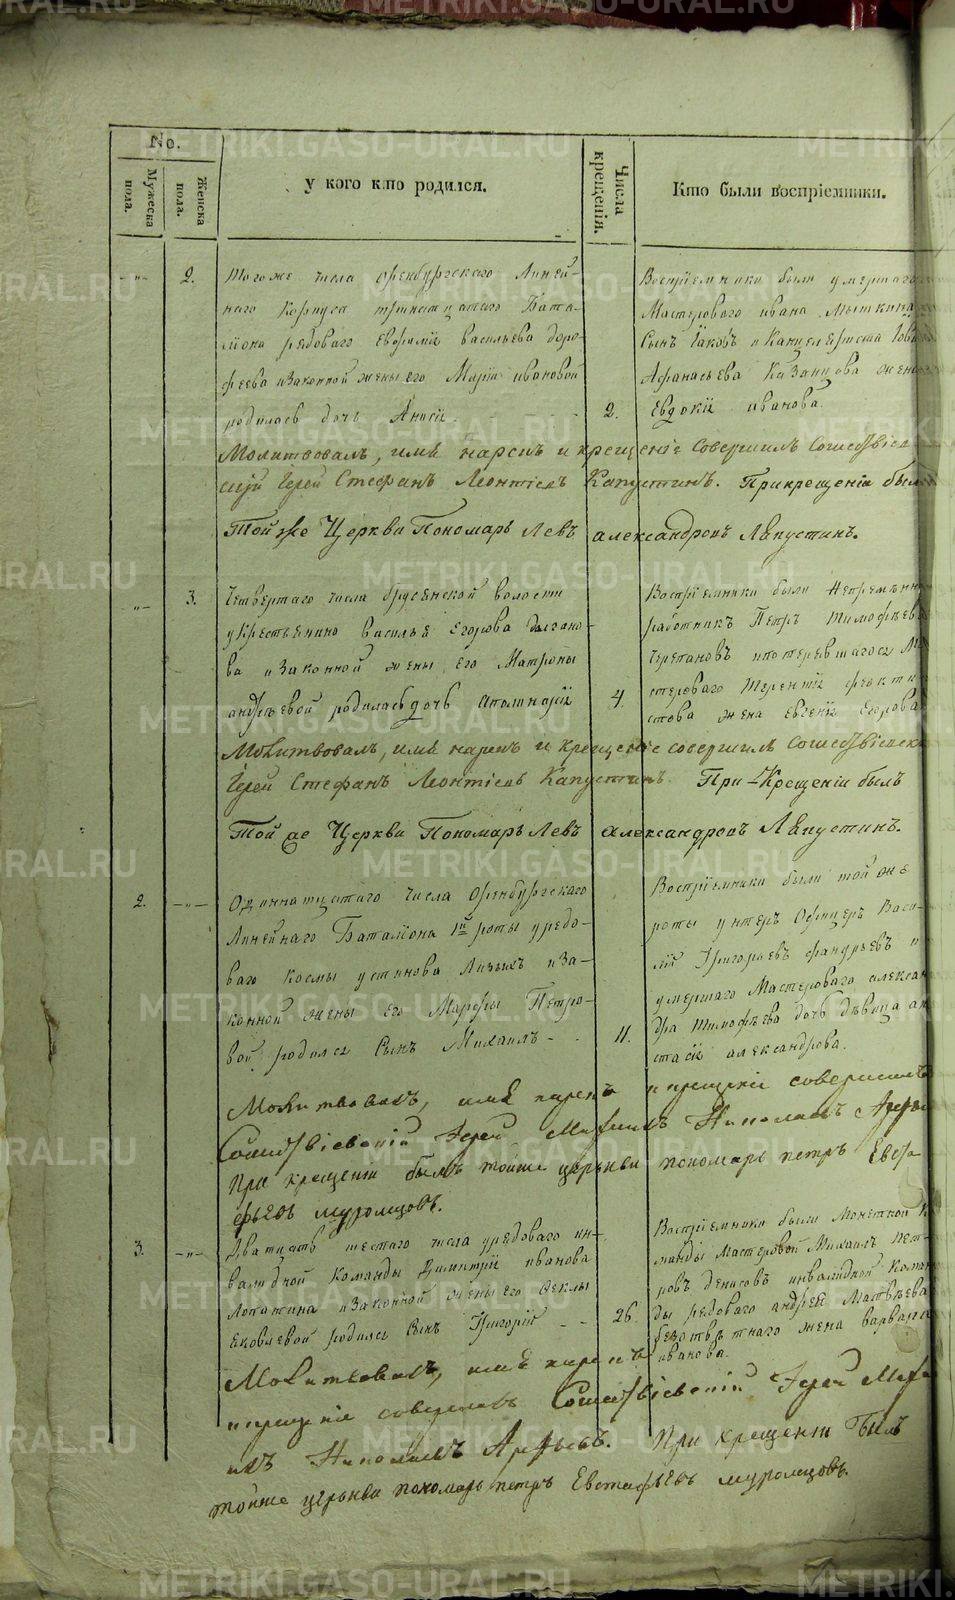 No.
Мужеска пола.
Женска пола.
у кого кто родился.
Числа крещенія.
Кто были воспріемники.
2.
Тогоже числа Оренбургскаго Линей-
наго Корпуса тринатцатаго Бата-
ліона редоваго Евфиміи васильева доро-
феева изаконной жены его Маріи ивановой
родилась дочь Анисіи.
2.
Воспріемники были умершаго
Мастероваго ивана Мыткина
Сынъ Іаковъ и Канцеляриста
Афанасьева Казанцова жена
Евдокіи иванова.
Молитвовалъ, имя нарекъ и крещеніе совершилъ Сошествіев
скій Іерей Стефанъ Леонтіевъ Капустинъ. Прикрещеніи былъ
Той же Церкви Пономарь Левъ александровъ Лапустинъ.
3.
Четвертаго числа брусянской волости
укрестьянино василья Егорова
ва изаконной жены его Матроны
андреевой родиласьдочь аполинаріи
4.
Воспріемники были Непременн
работникъ Петръ Тимофеев
Черепановъ ипотерявшагося Ма
стероваго Терентіи феокти
стова жена Евгеніи Егорова
Молитвовалъ, имя нарекъ и крещеніе совершилъ Сошествіевск
Іерей Стефанъ Леонтіевъ Капустинъ При-Крещеніи былъ
Той же Церкви Пономарь Левъ александровъ Лапустинъ.
2.
Одиннатцатаго числа Оренбургскаго
Линейнаго Баталіона 1й роты уредо-
ваго космы устинова иза-
конной жены его Марфы Петро-
вой родился Сынъ Михаилъ -
11.
Воспріемники были той же
роты унтеръ Офицеръ Васи
лій Григорьевъ фандеевъ и
умершаго Мастероваго алексан
дра Тимофеева дочь девица ан
стасіи александрова.
Молитвовалъ, имя нарекъ и крещеніе совершилъ
Сошествіевскій Іерей Михаилъ Николаевъ Арефье
При крещеніи былъ тойже церькви пономарь петръ Евста
фьевъ муромцовъ.
3.
Дватцать шестаго числа уредоваго ин-
валидной команды Димитріи иванова
Лопатина изаконной жены его Феклы
Яковлевой родился Сынъ Григоріи - -
26.
Воспріемники были Монетной к
манды Мастеровой Михаилъ пет-
ровъ денисовъ инвалидной коман
ды редоваго андрея Матвеева
безответнаго жена варвара
иванова.
Молитвовалъ, имя нарекъ
и крещеніе совершилъ Сошествіевскій Іерей Миха
илъ Николаевъ Арефьевъ. При крещеніи былъ
тойже церькви пономарь петръ Евстафьевъ муромцовъ.
METRIKI.GASO-URAL.RU